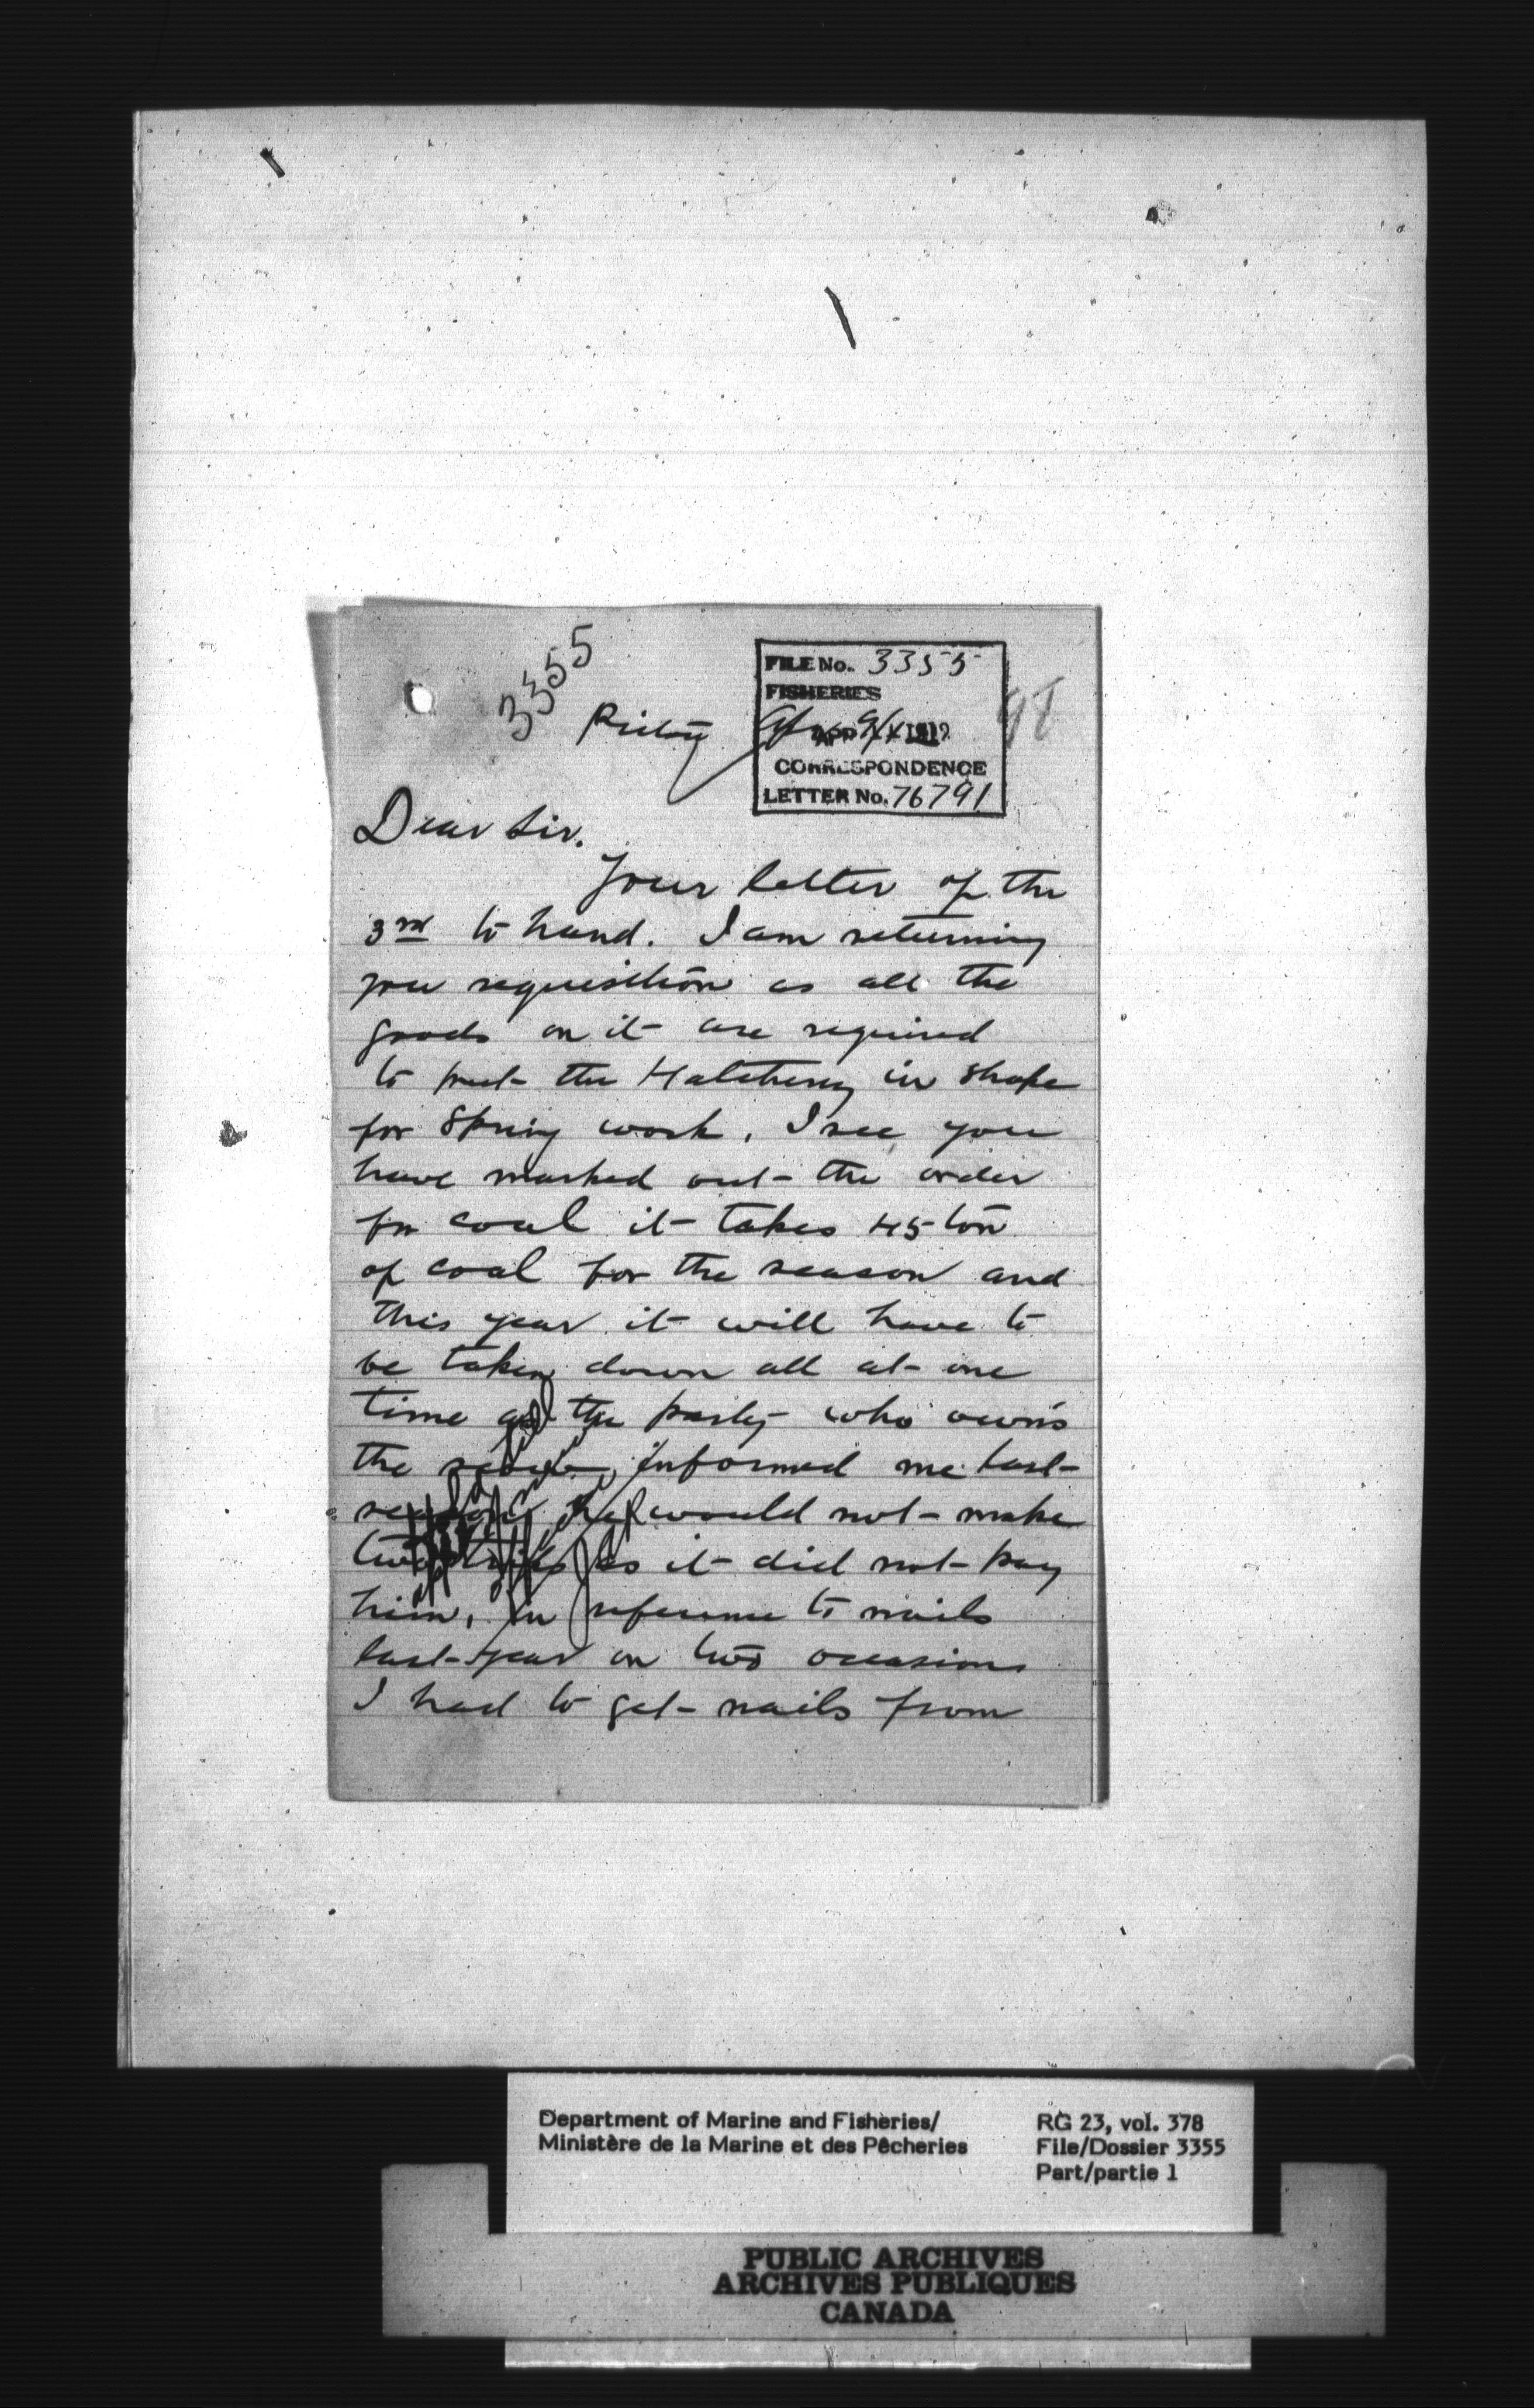 3355
FILE No. 3355
FISHERIES
1912
CORRESPONDENCE
LETTER No. 76791
Dear Sir.
Your letter of the
3rd to hand. I am returning
you requisition as all the
goods on it are required
to put the Hatchery in shape
for Spring work. I see you
have marked out the order
for coal it takes 45 ton
of coal for the season and
this year it will have to
be taken down all at one
time as the party who owns
the scow informed me last
season he would not make
two trips as it did not pay
him, in reference to nails
last year on two occasions
I had to get nails from
Department of Marine and Fisheries/
Ministère de la Marine et des Pêcheries
RG 23, vol. 378
File/Dossier 3355
Part/partie 1
PUBLIC ARCHIVES
ARCHIVES PUBLIQUES
CANADA